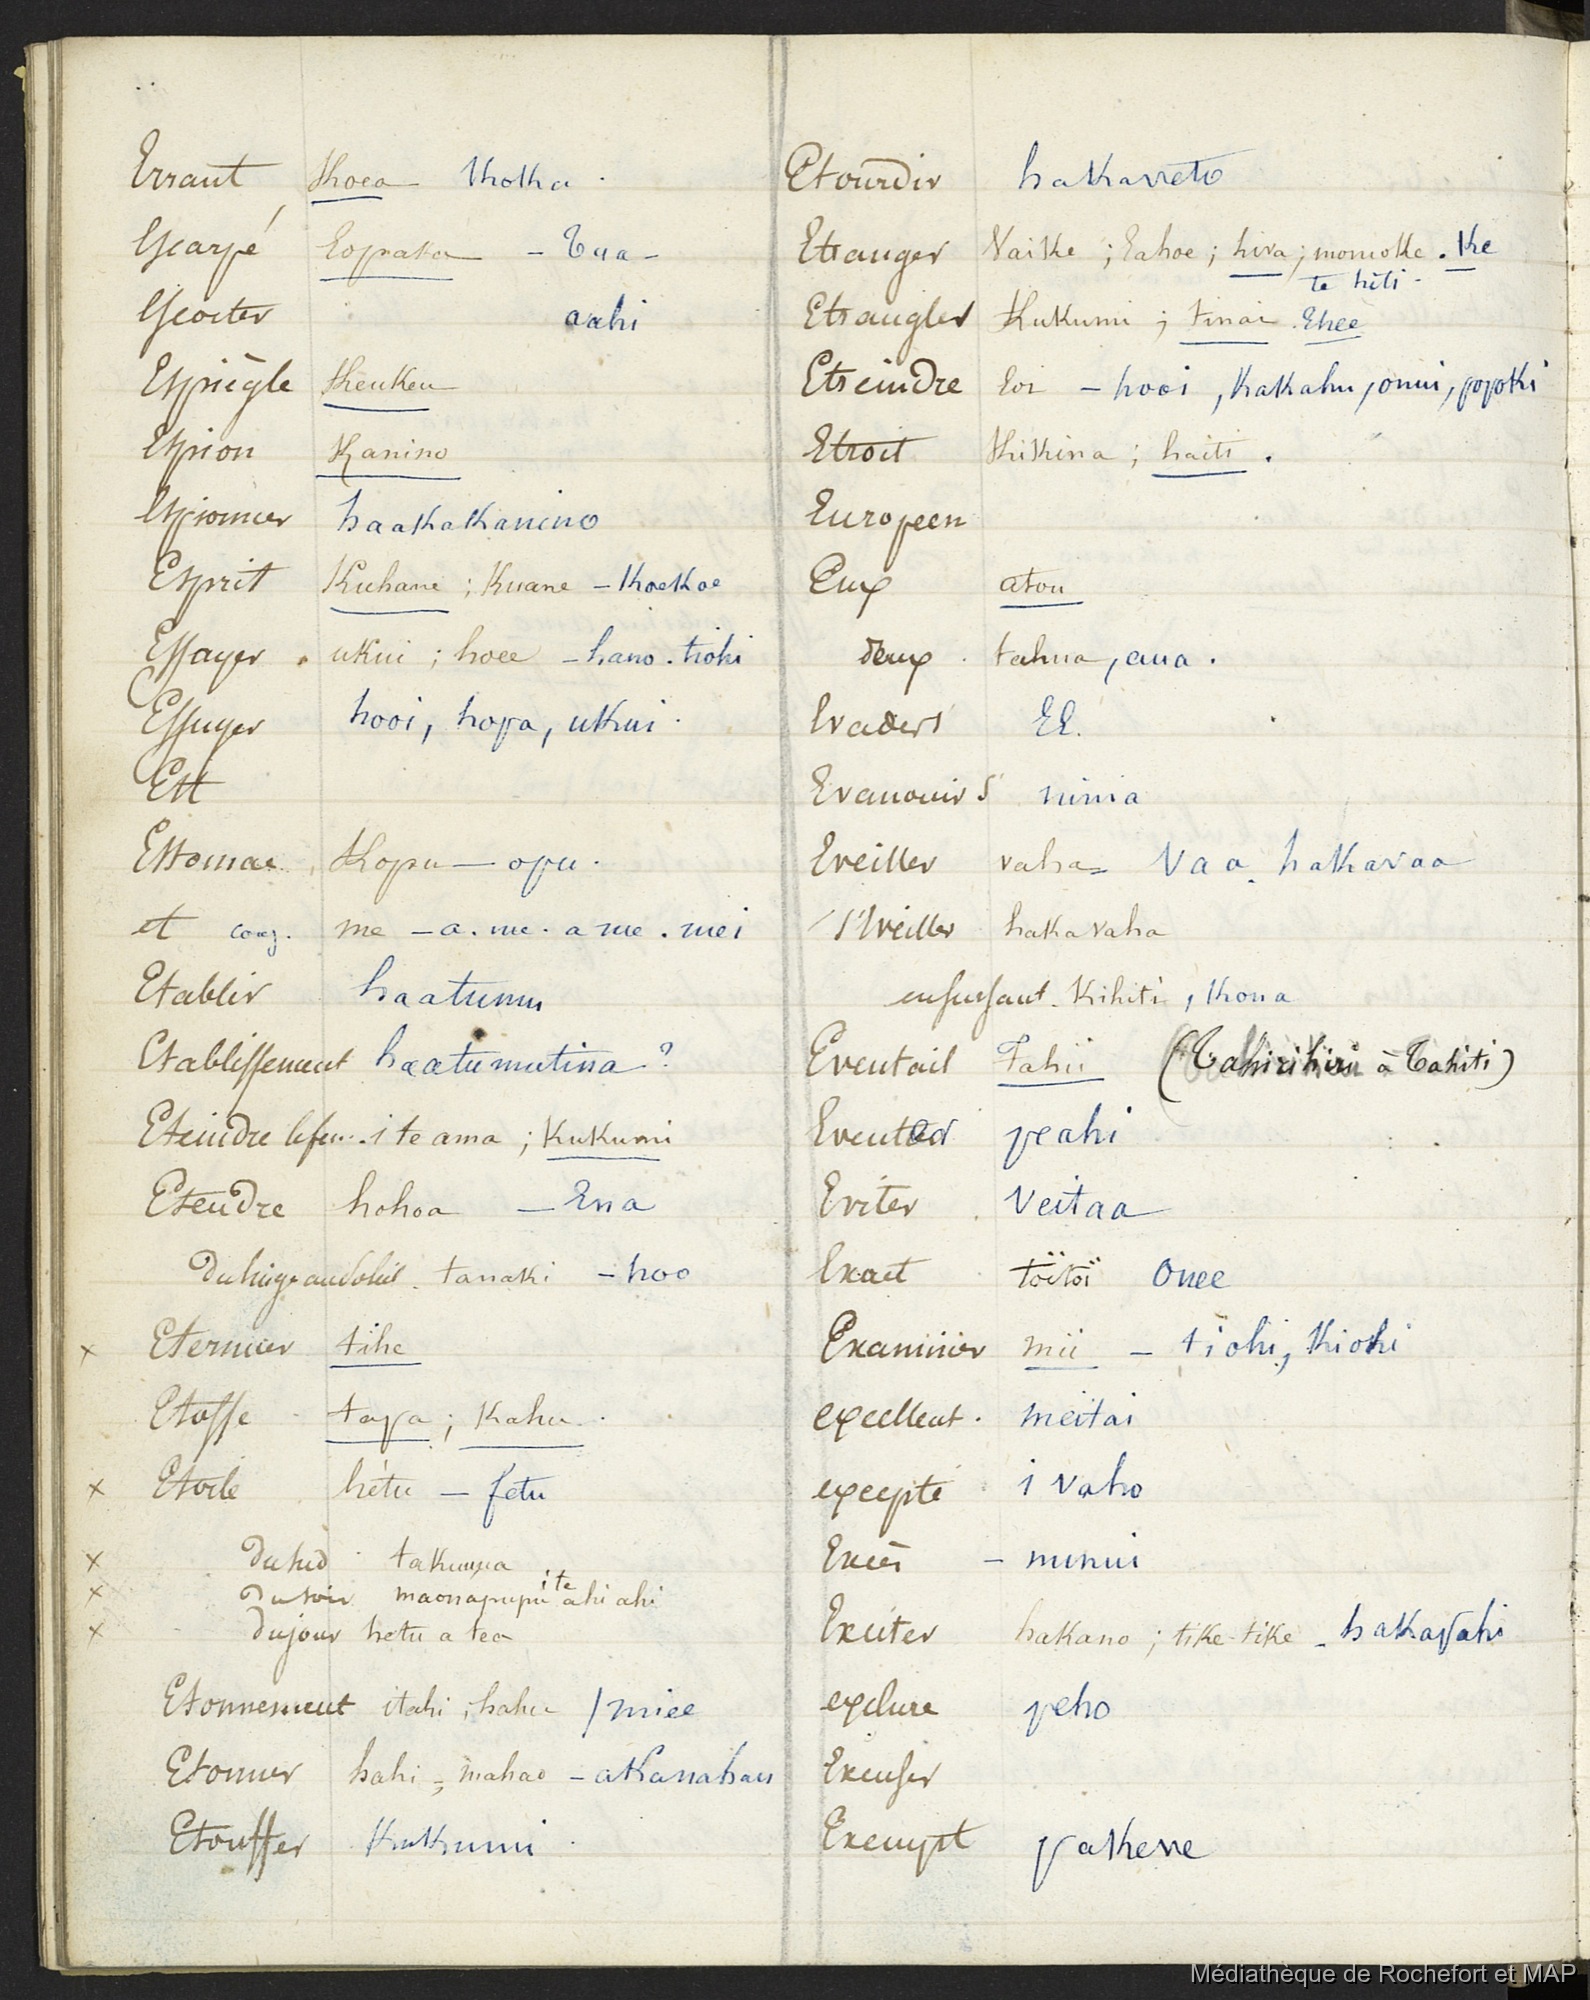 Errant Koea Kolka
Escarpé Eopata - Tua -
Escorter aahi
Espiègle Keukeu
Espion Kanino
Espionner haakakanino
Esprit Kuhane ; Kuane - Koekoe
Essayer ukui ; hoee - hano . tiohi
Essuyer hooi, hopa, ukui
Est
Estomac Kopu - opu .
et conj. me - a . me . a me . mei
Etablir haatumu
Etablissement haatumutina ?
Eteindre le feu . i te ama ; Kukumi
Etendre hohoa - Ena
du linge au soleil . tanaki - hoo
x Eternuer tihe
Etoffe tapa ; Kahu .
x Etoile hétu - fetu
x du sud takuupa
x du soir maonapupu i te ahi ahi
x du jour hetu a tea
Etonnement itahi ; hahu / miee
Etonner hahi = mahao - akanahau
Etouffer Kukumi
Etourdir hakaveto
Etranger Vaike ; Eahoe ; hiva ; momoke . Ke
te hiti -
Etrangler Kukumi ; tinai . Ehee
Etreindre Eoi - hooi , kakahu , omui , popoki
Etroit Kikina ; haiti .
Européen
Eux atou
deux tahua , aua .
Evader s' EE.
Evanouir s' nimia
Eveiller vaha = Vaa . hakavaa
s'Eveiller hakavaha
en sursaut . Kihiti , Kona
Eventail Tahii (Tahirihiri à Tahiti)
Eventer peahi
Eviter Veitaa
Exact toïtoï Onee
Examiner mii - tiohi, Kiohi
excellent . meitai
excepté i vaho
Excès - mimui
Exciter hakano ; tike-tike - hakavahi
exclure peho
Excuser
Exempt pakeve
Médiathèque de Rochefort et MAP